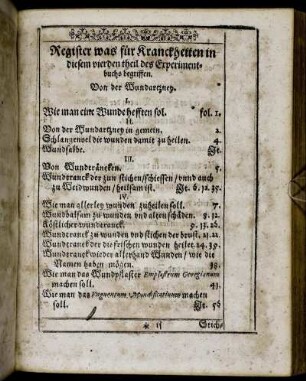 Register was für Kranckheiten in
diesem vierden theil des Experiment-
buchs begriffen.
Von der Wundartzney.
I.
Wie man eine Wunde hefften sol. fol. 1.
II.
Von der Wundartzney in gemein. 2.
Schlangenoel die wunden damit zu heilen. 4.
Wundsalbe. Ib.
III.
Von Wundträncken. 5.
Wundtranck der zun stichen/schiessen/vnnd auch
zu Weidwunden/heilsam ist. 6. 12. 39.
IV.
Wie man allerley wunden zuheilen soll. 7.
Wundbalsam zu wunden vnd alten schäden. 8. 12.
Köstlicher wundtranck. 9. 11. 26.
Wundtranck zu wunden vnd stichen der brust. 13. 22.
Wundtranck der die frischen wunden heilet. 24. 39.
Wundtranck wieder allerhand Wunden/wie die
Namen haben mögen. 38.
Wie man das Wundpflaster Emplastrum Georgianum
machen soll. 43.
Wie man das Unguentum Mundificativum machen
soll. 56
Stich-